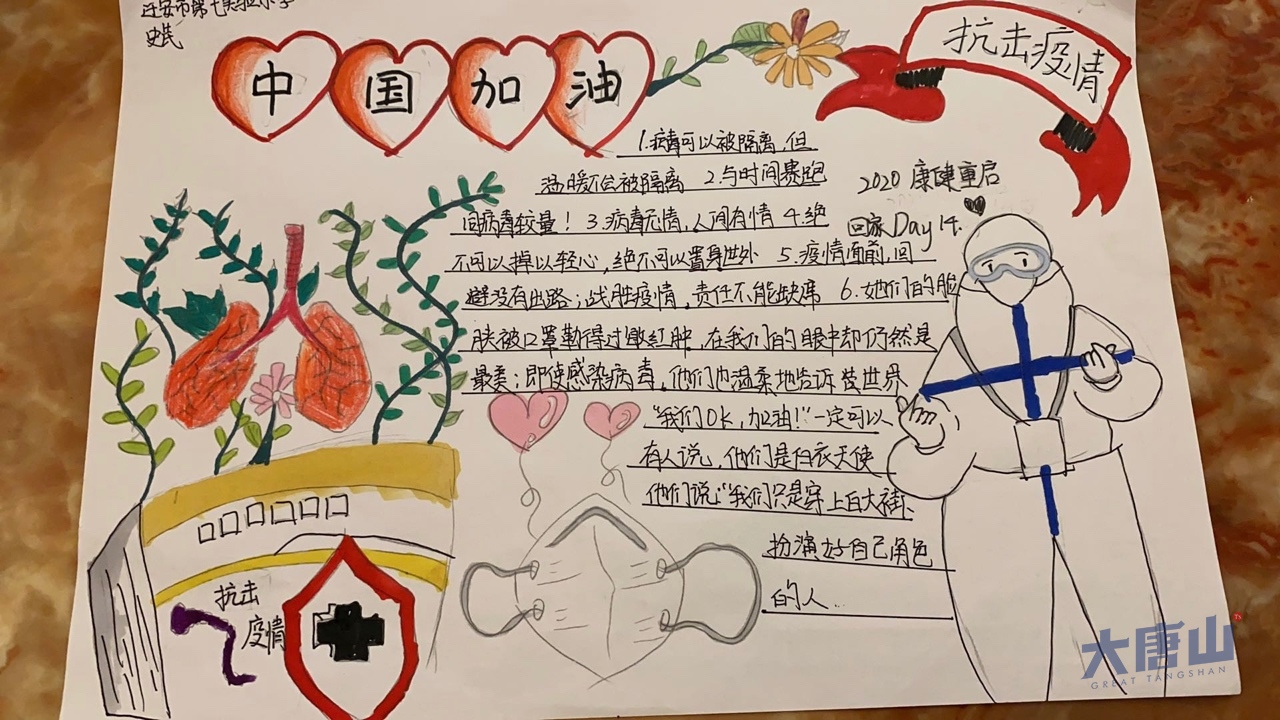 迁安市第七实验小学
史民
中国加油
抗击疫情
1.病毒可以被隔离,但
温暖不会被隔离 2.与时间赛跑
同病毒较量! 3.病毒无情,人间有情 4.绝
不可以掉以轻心,绝不可以置身世外 5.疫情面前,回
避没有出路;战胜疫情,责任不能缺席 6.她们的脸
肤被口罩勒得过敏红肿,在我们的眼中却仍然是
最美;即使感染病毒,他们也温柔地告诉 世界
“我们OK,加油!”一定可以
有人说,他们是白衣天使
他们说:“我们只是穿上白大褂、
扮演好自己角色
的人...
2020 康健重启
回家Day 14.
抗击
疫情
大唐山
GREAT TANGSHAN